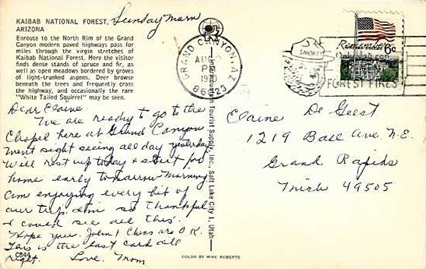 KAIBAB NATIONAL FOREST,
ARIZONA
Sunday morn
Enroute to the North Rim of the Grand
Canyon modern paved highways pass for
miles through the virgin stretches of
Kaibab National Forest. Here the visitor
finds dense stands of spruce and fir, as
well as open meadows bordered by groves
of light-trunked aspen. Deer browse
beneath the trees and frequently cross
the highway, and occasionally the rare
"White Tailed Squirrel" may be seen.
Dear Elaine
We are ready to go to the
Chapel here at Grand Canyon
Went sight seeing all day yesterday
Will rest up today & start for
home early tomorrow morning
Am enjoying every bit of
our trip. Am so thankful
I could see all this.
Hope you, John & Chas are O.K.
This is the last card all
Love. Mom
Tourist Supply, Inc. Salt Lake City, Utah
COLOR BY MIKE ROBERTS
GRAND CANYON, AZ
PM
1970
86023
SMOKEY
FOREST FIRES
6c
Elaine De Geest
1219 Ball Ave N.E.
Grand Rapids
Mich 49505